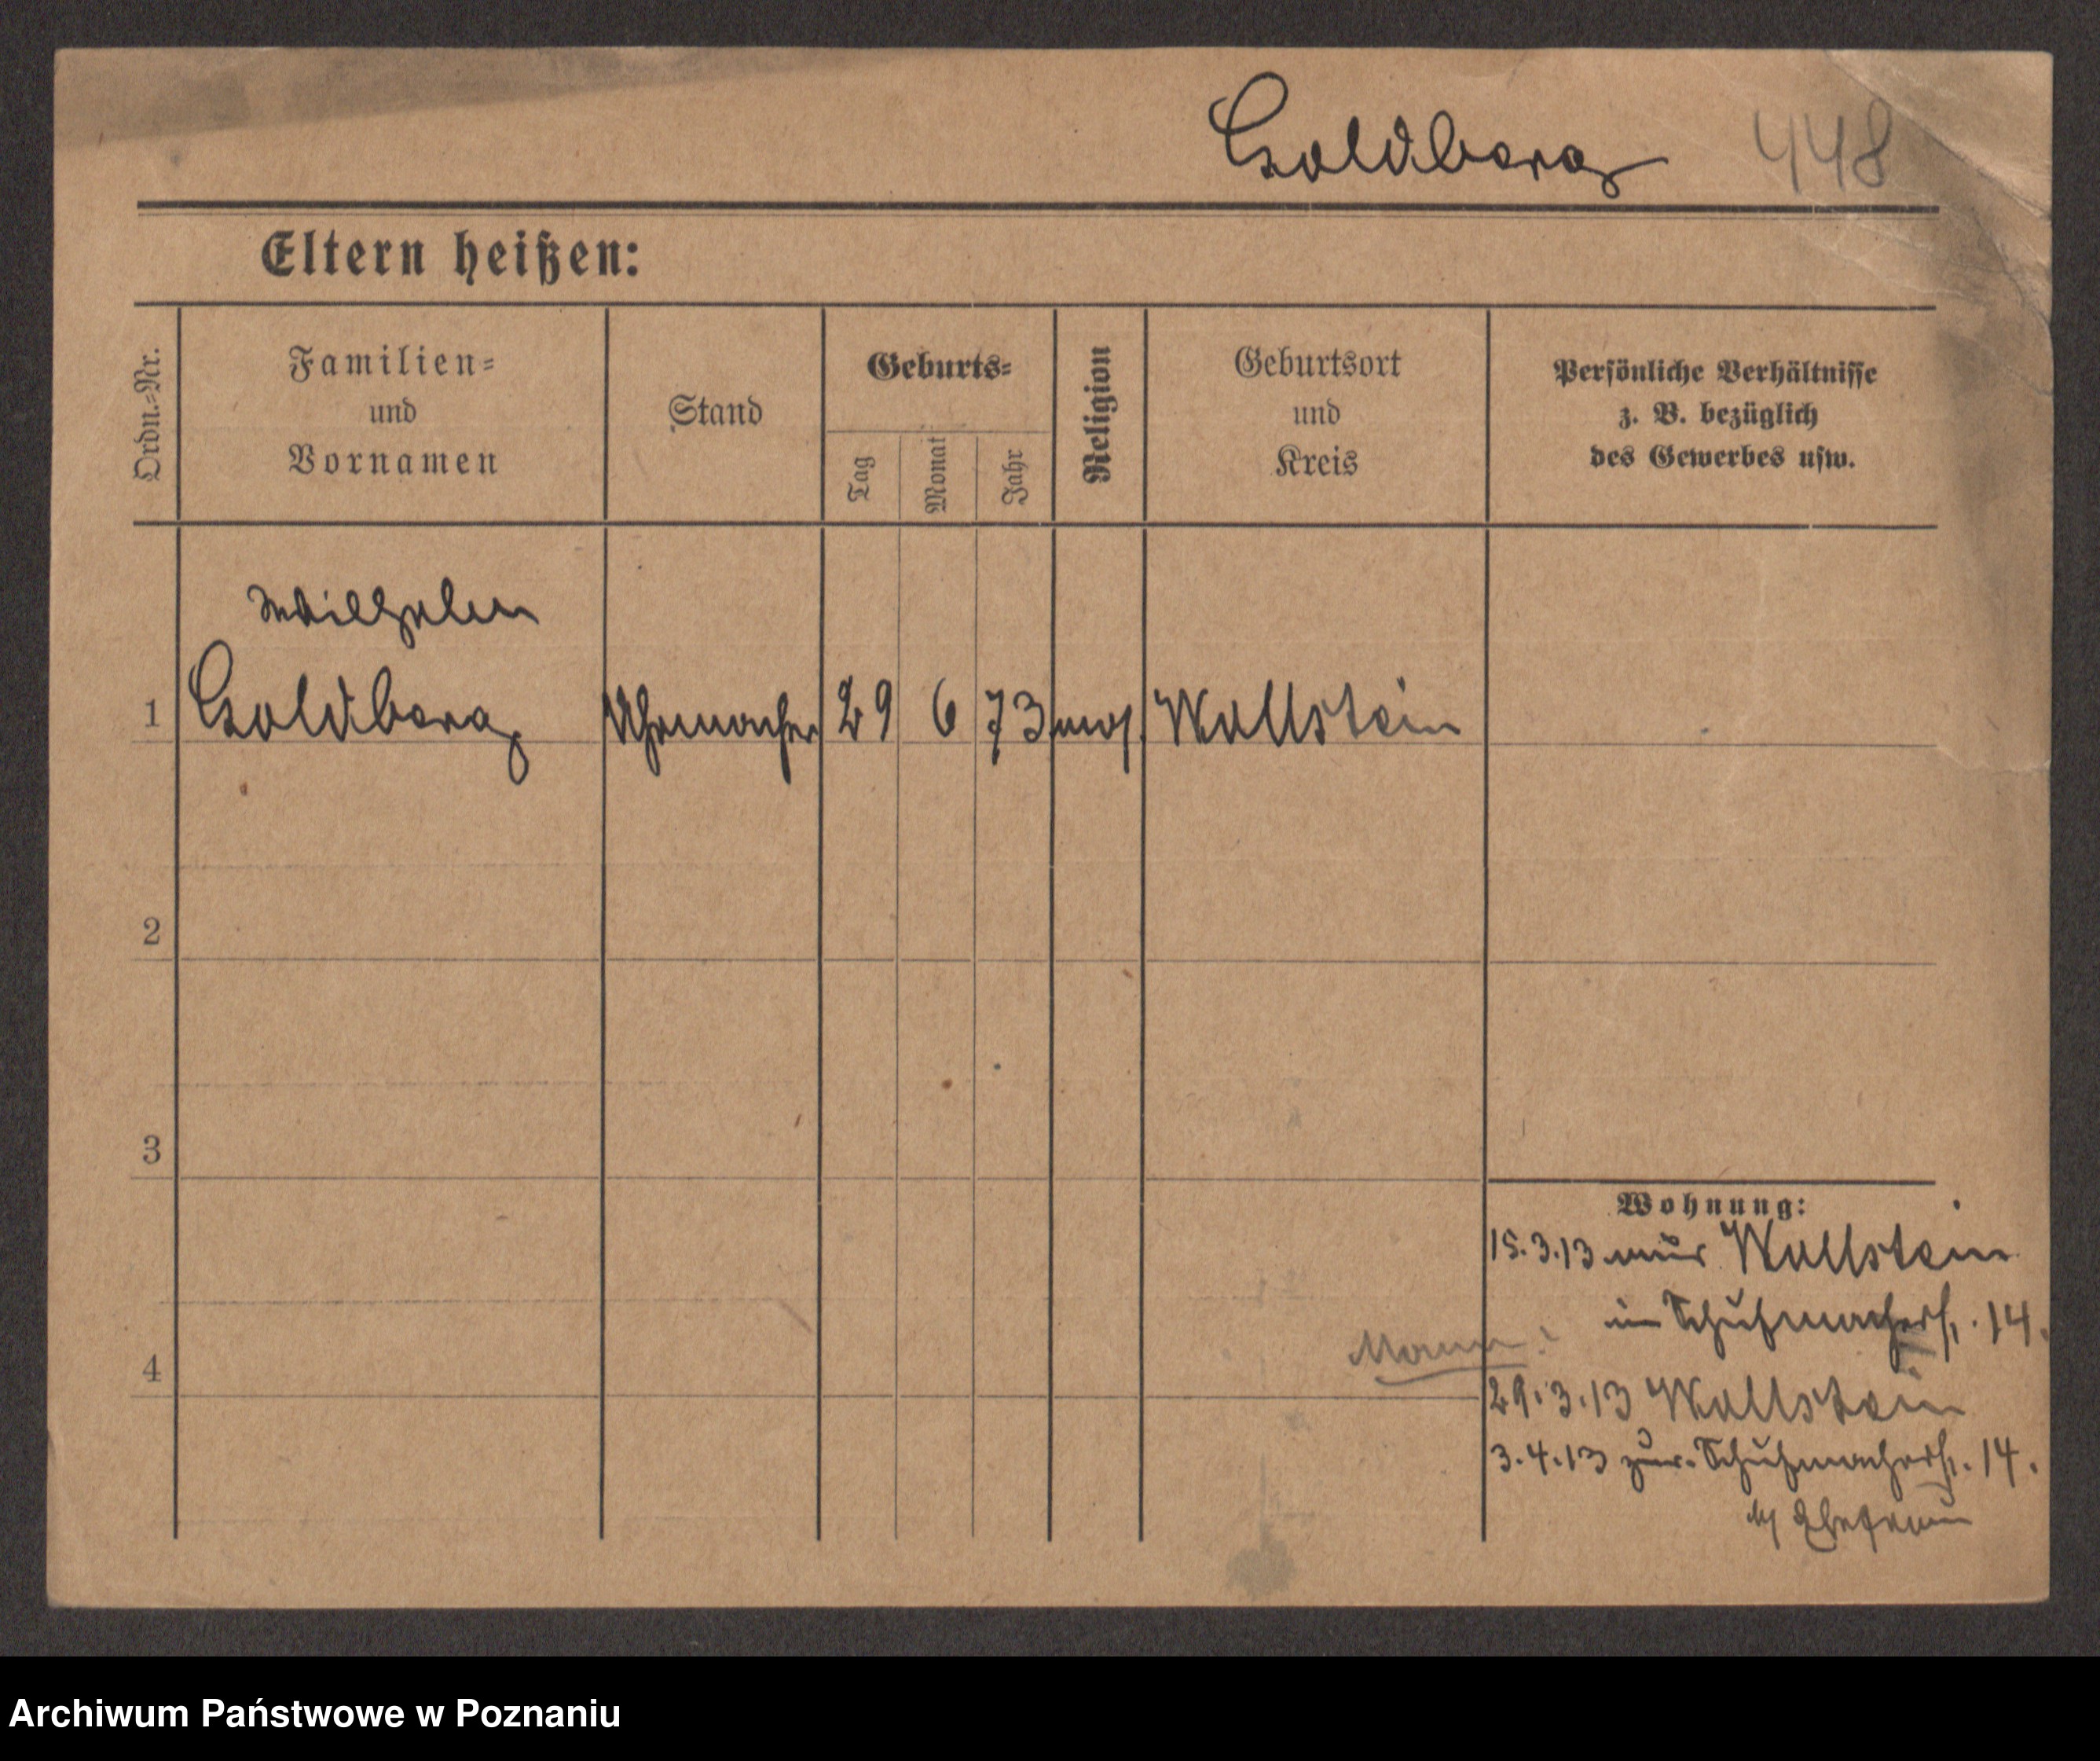 Goldberg 448
Eltern heißen:
Ordn.-Nr.
Familien-
und
Vornamen
Stand
Geburts-
Tag
Monat
Jahr
Religion
Geburtsort
und
Kreis
Persönliche Verhältnisse
z. B. bezüglich
des Gewerbes usw.
Wilhelm
1 Goldberg Uhrmacher 29 6 73 mos. Wollstein
2
3
Wohnung:
15.3.13 Wollstein
Schuhmacherst. 14.
4
29.3.13 Wollstein
3.4.13 zur. Schuhmacherst. 14.
Ehefrau
Archiwum Państwowe w Poznaniu